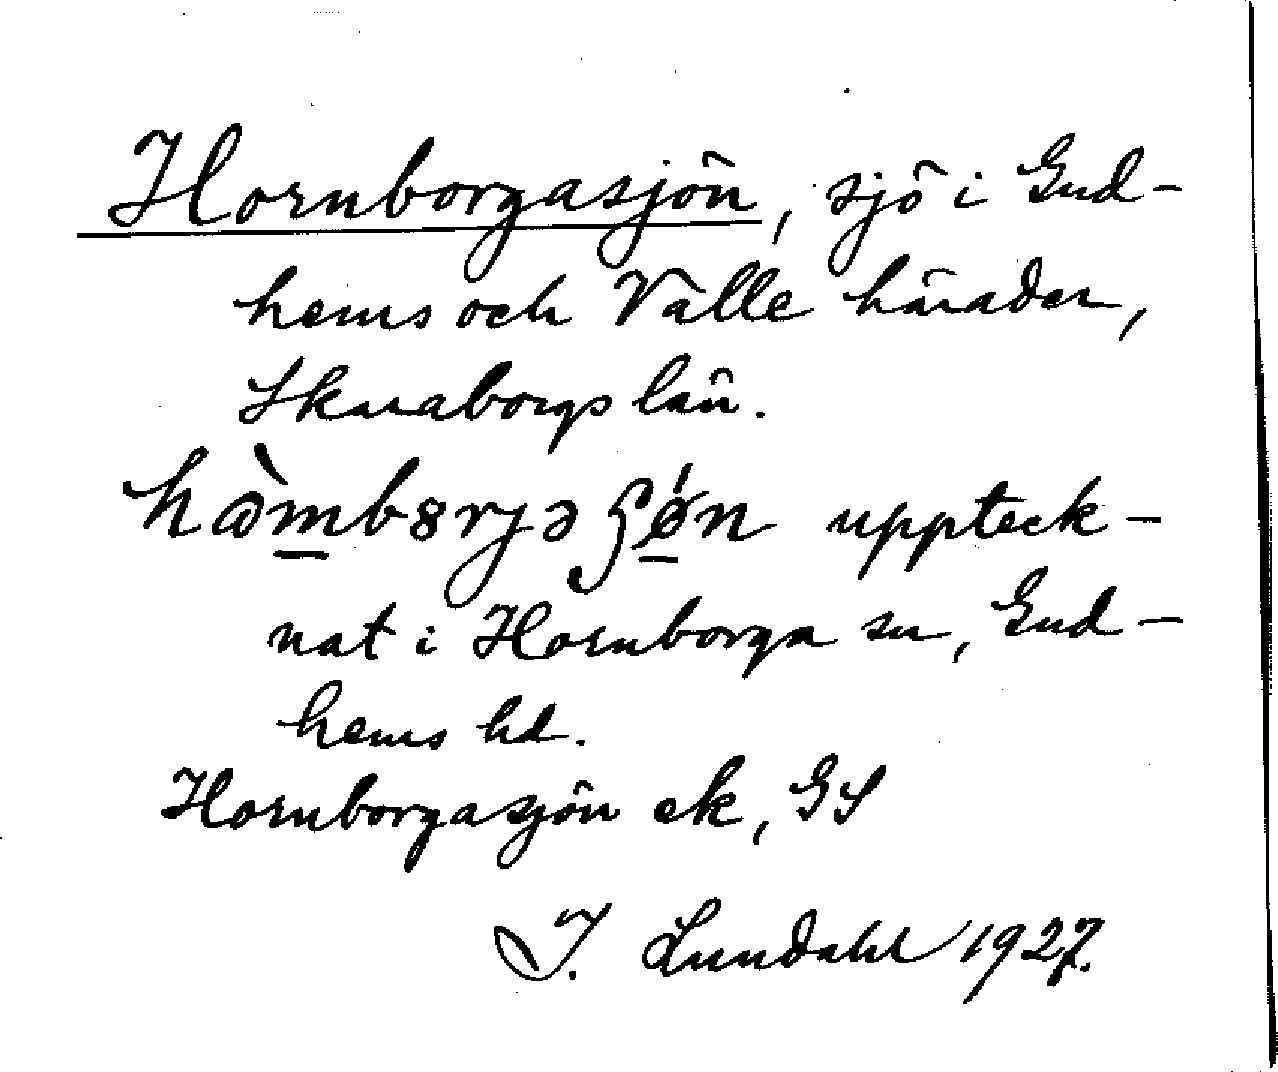 Hornborgasjön, sjö i Gud-
hems och Valle härader,
Skaraborgs län.
hɷ̀m̲b8rjəʃǿ̲n uppteck-
nat i Hornborga sn, Gud-
hems hd.
Hornborgasjön ek, GS
I. Lundahl 1927.